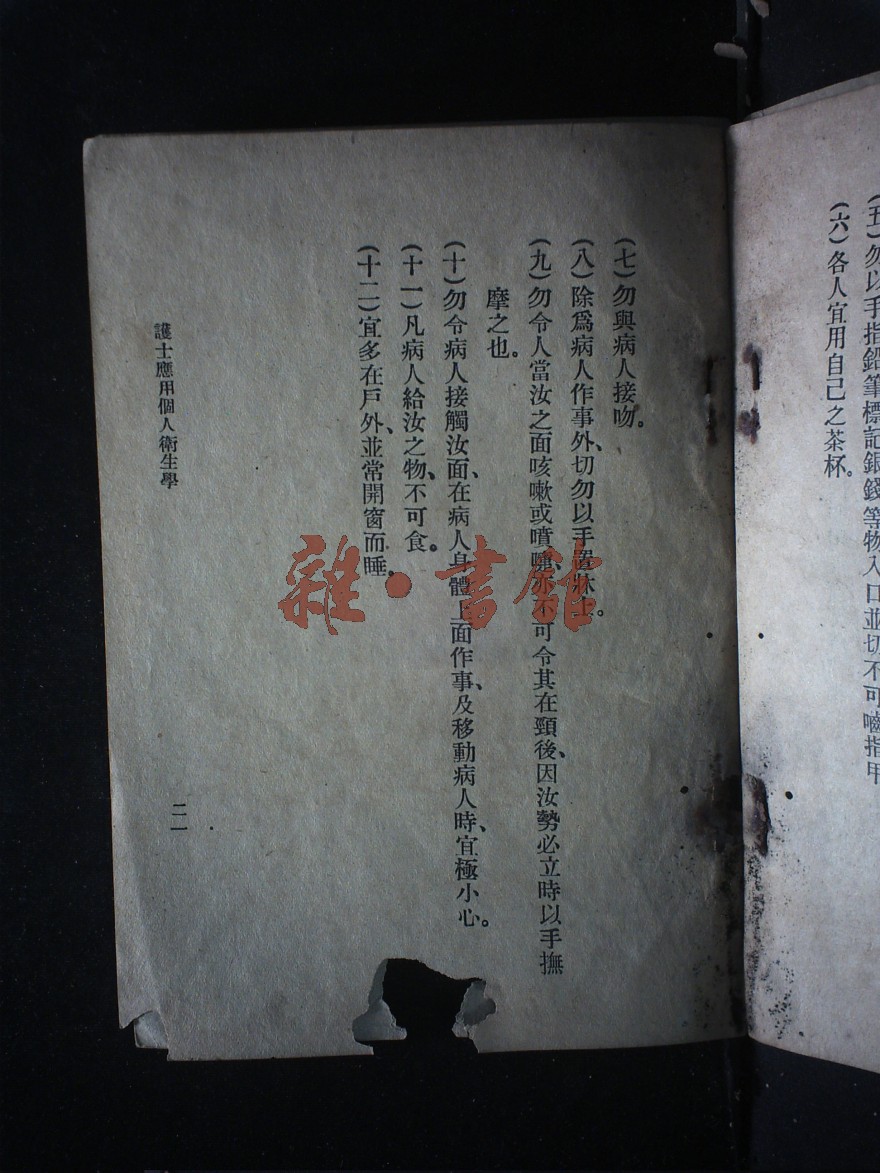 (五)勿以手指鉛筆標記銀錢等物入口並切不可嚙指甲
(六)各人宜用自己之茶杯。
(七)勿與病人接吻。
(八)除爲病人作事外、切勿以手置牀上。
(九)勿令人當汝之面咳嗽或噴嚏、亦不可令其在頸後、因汝勢必立時以手撫
摩之也。
(十)勿令病人接觸汝面、在病人身體上面作事、及移動病人時、宜極小心。
(十一)凡病人給汝之物、不可食。
(十二)宜多在戶外、並常開窗而睡。
護士應用個人衛生學
二一
雜·書館